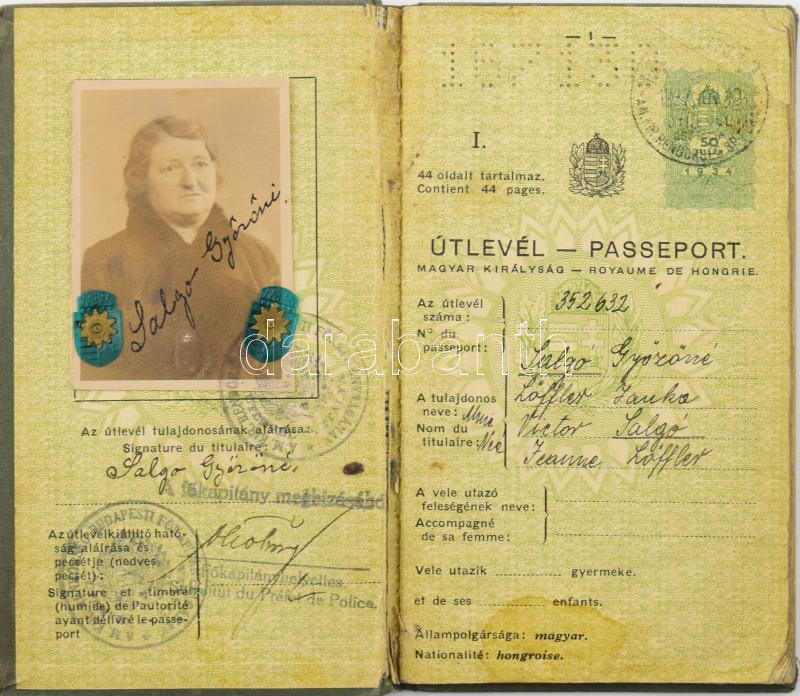 Salgo Győzőné.
Az útlevél tulajdonosának aláírása:
Signature du titulaire:
Salgo Győzőné.
A főkapitány megbízásából
Az útlevélkiállító ható-
ság aláírása és
pecsétje (nedves
pecsét):
Signature et timbre
(humide) de l'autorité
ayant délivré le passe-
port
Főkapitányhelyettes
Substitut du Préfet de Police.
— 1 —
I.
50
1934
44 oldalt tartalmaz.
Contient 44 pages.
ÚTLEVÉL — PASSEPORT.
MAGYAR KIRÁLYSÁG — ROYAUME DE HONGRIE.
Az útlevél
száma:
352632
N° du
passeport:
Salgó Győzőné
A tulajdonos
neve:
Löffler Janka
Nom du
titulaire:
Victor Salgó
Née Jeanne Löffler
A vele utazó
feleségének neve:
Accompagné
de sa femme:
Vele utazik gyermeke.
et de ses enfants.
Állampolgársága: magyar.
Nationalité: hongroise.
darabanth